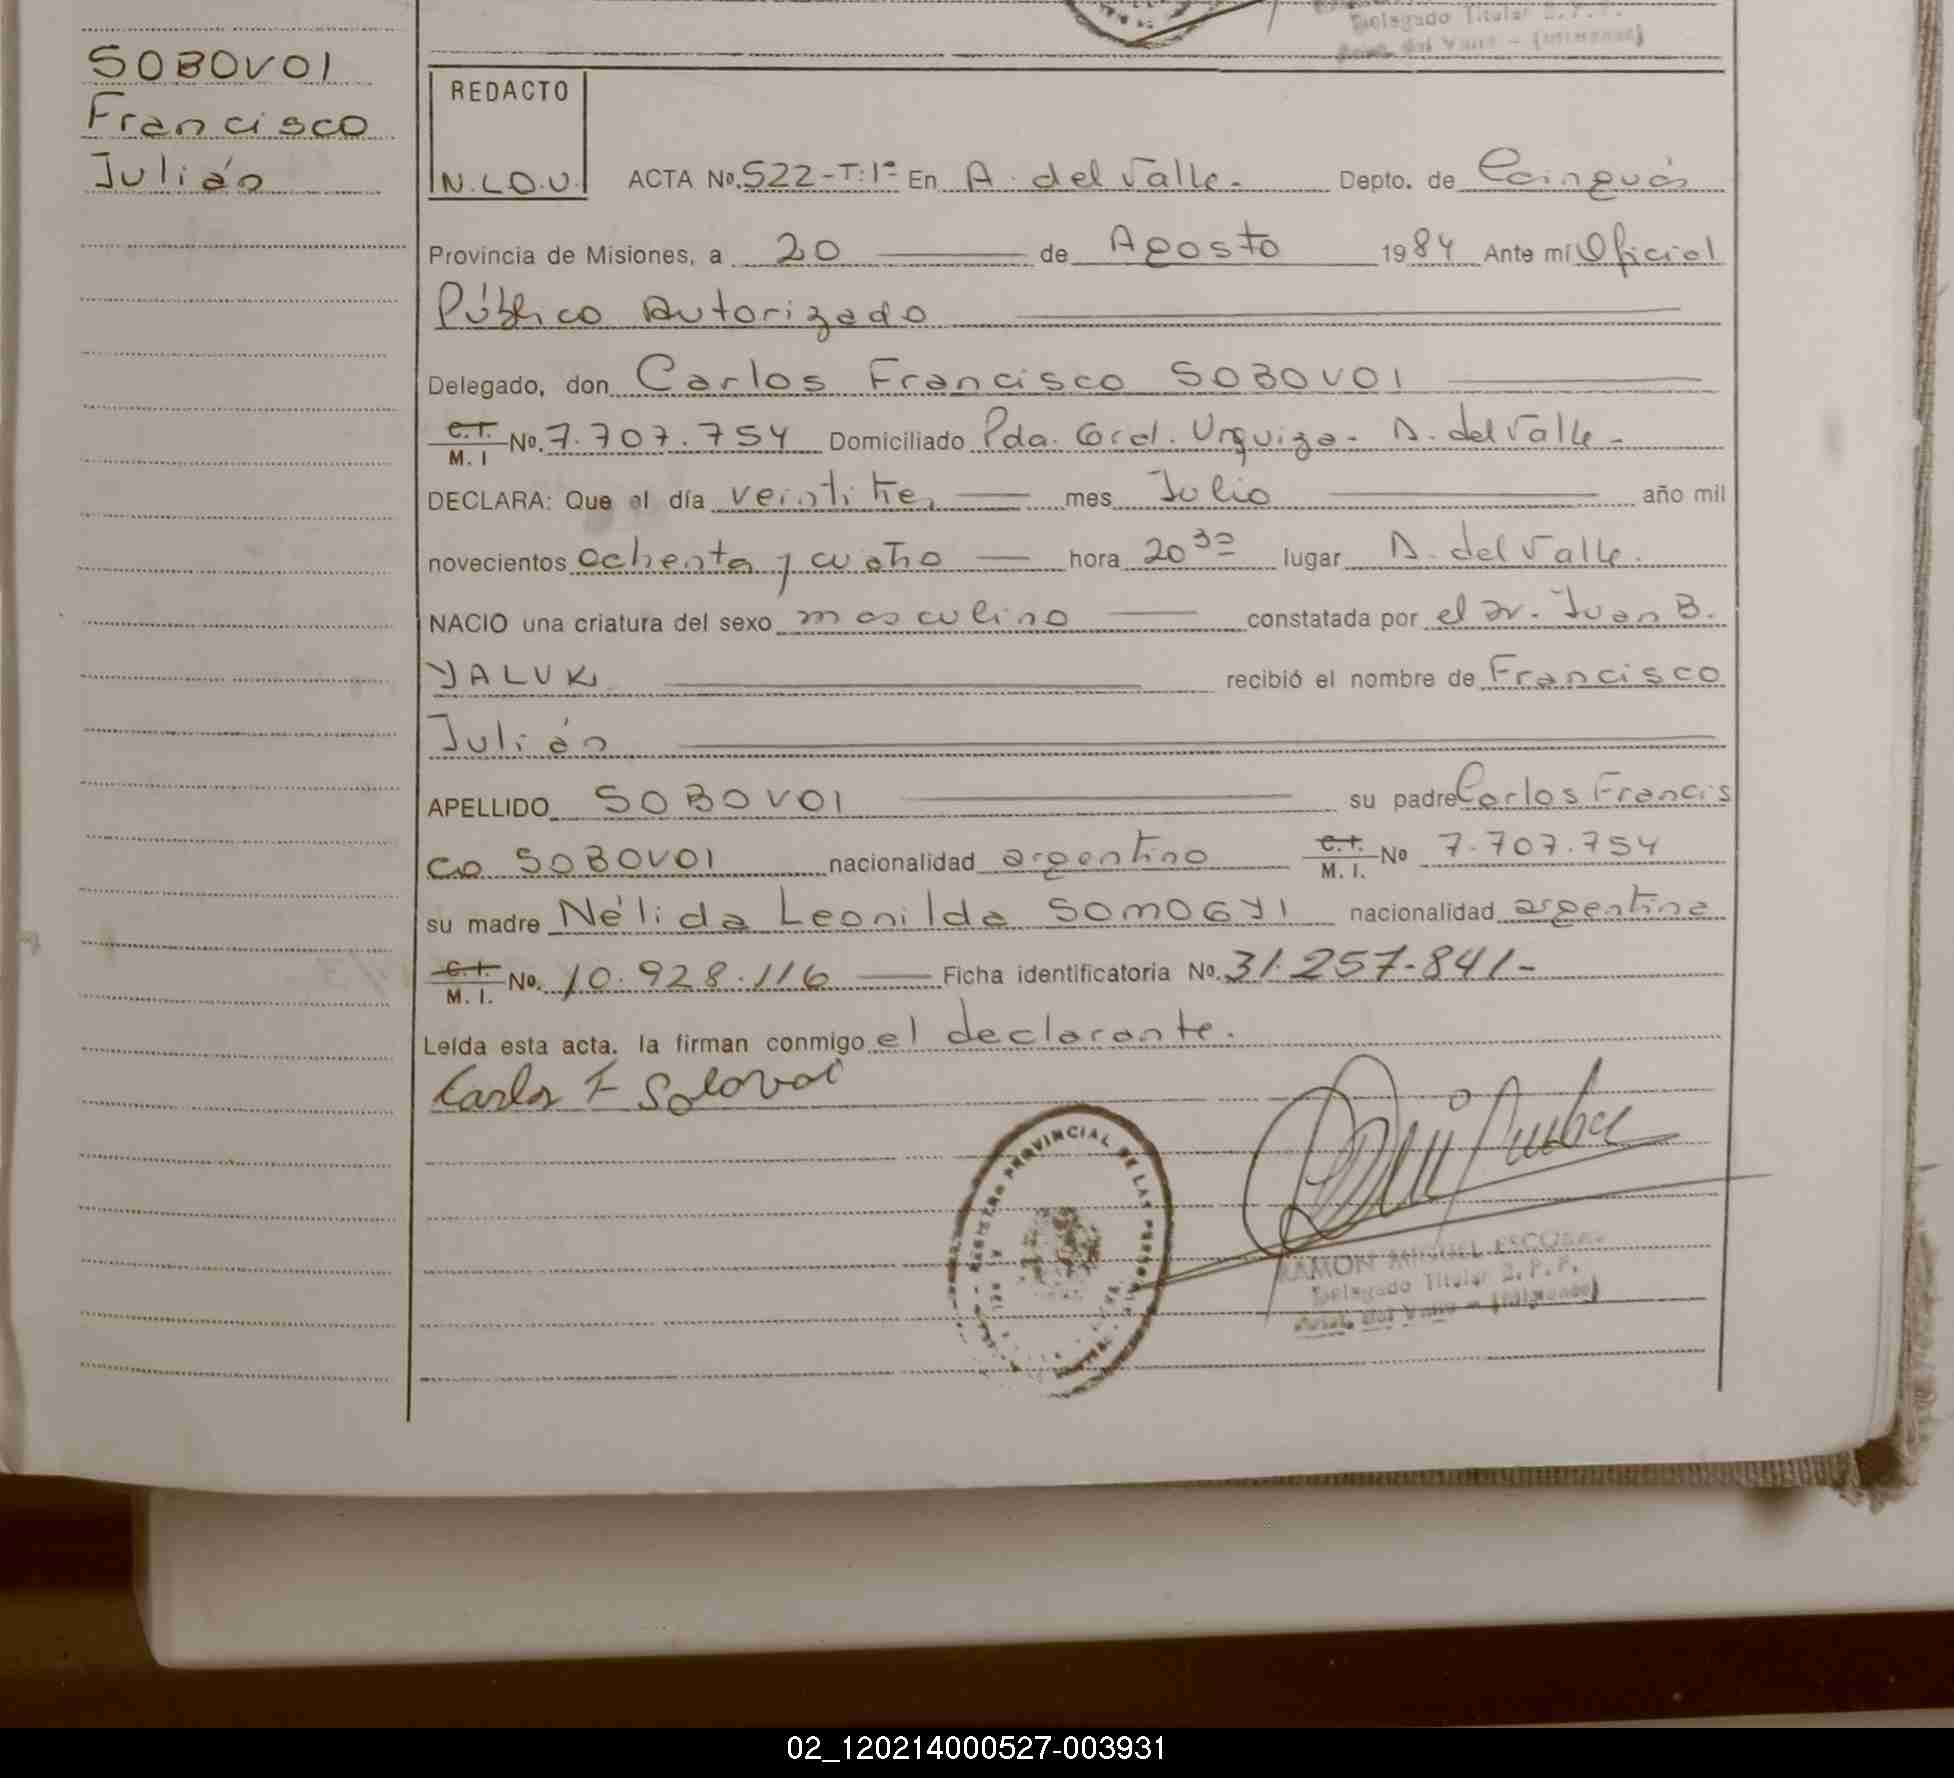 Delegado Titular
SOBOVOI
Francisco
Julián
REDACTO
N.L.O.U.
ACTA No. 522-T:1º En A. del Valle. Depto. de Cainguás
Provincia de Misiones, a 20 de Agosto 1984 Ante mí Oficial
Público Autorizado
Delegado, don Carlos Francisco SOBOVOI
C.I. M.I No. 7.707.754 Domiciliado Pda. Gral. Urquiza. A. del Valle.
DECLARA: Que el día veintitres mes Julio año mil
novecientos ochenta y cuatro hora 20 30 lugar A. del Valle.
NACIO una criatura del sexo masculino constatada por el Dr. Juan B.
YALUK recibió el nombre de Francisco
Julián
APELLIDO SOBOVOI su padre Carlos Francis
co SOBOVOI nacionalidad argentino C.I. M.I. No 7.707.754
su madre Nélida Leonilda SOMOGYI nacionalidad argentina
C.I. M.I. No. 10.928.116 Ficha identificatoria No. 31.257.841-
Leída esta acta. la firman conmigo el declarante.
Carlos F Sobovoi
REGISTRO PROVINCIAL DE LAS PERSONAS
RAMON MIGUEL ESCOBAR
Delegado Titular
02_120214000527-003931